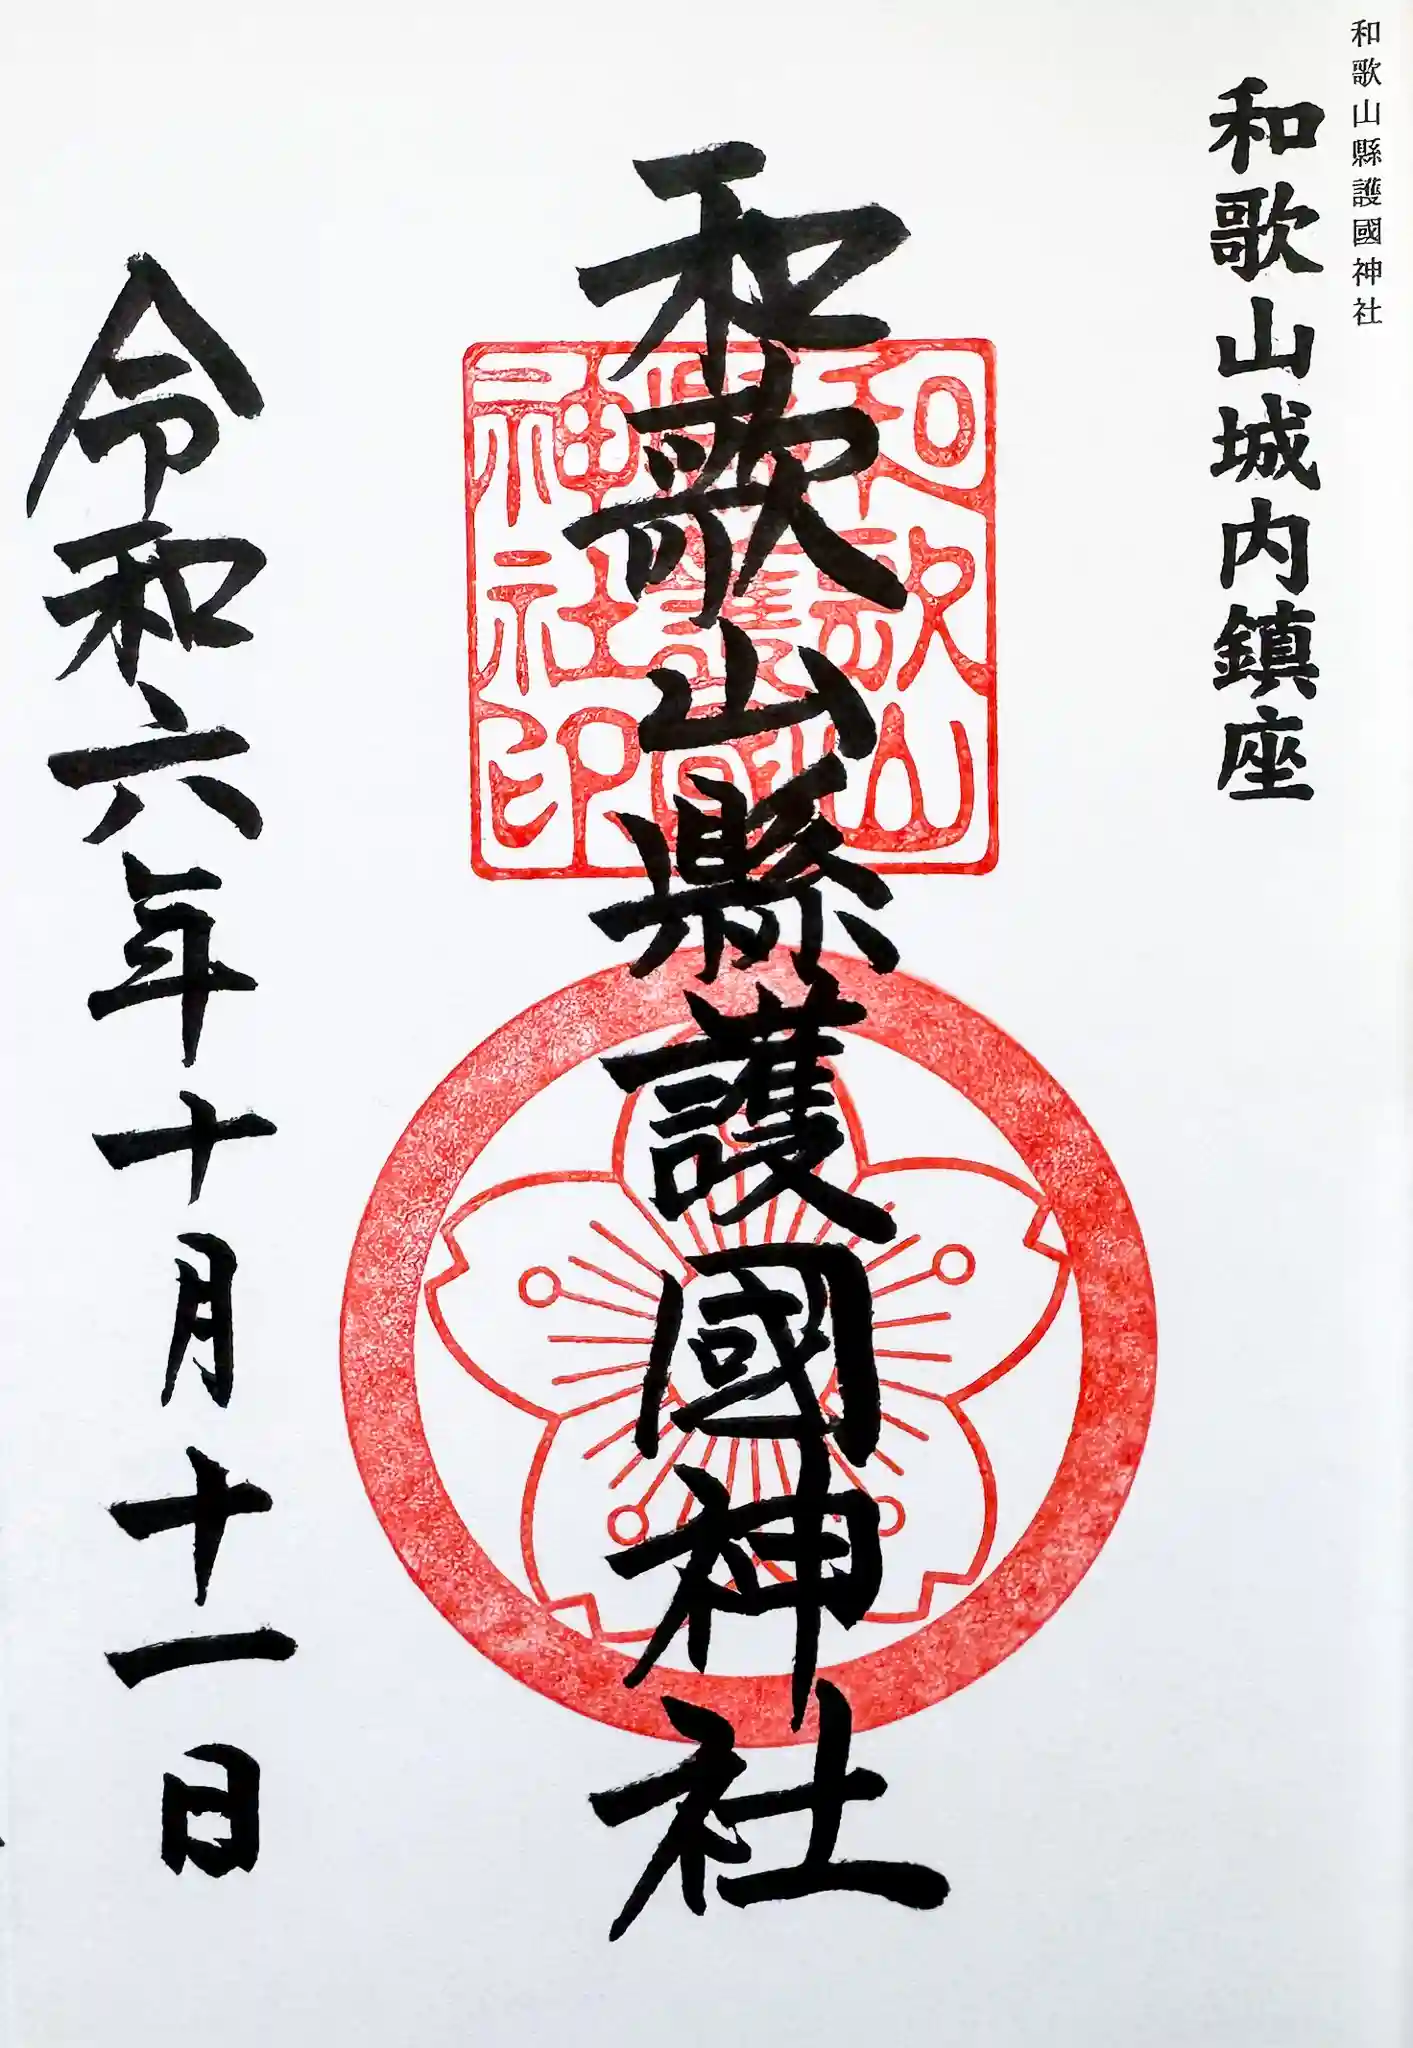 和歌山縣護國神社
和歌山城内鎮座
和歌山縣護國神社
和歌山縣護國神社印
令和六年十月十一日